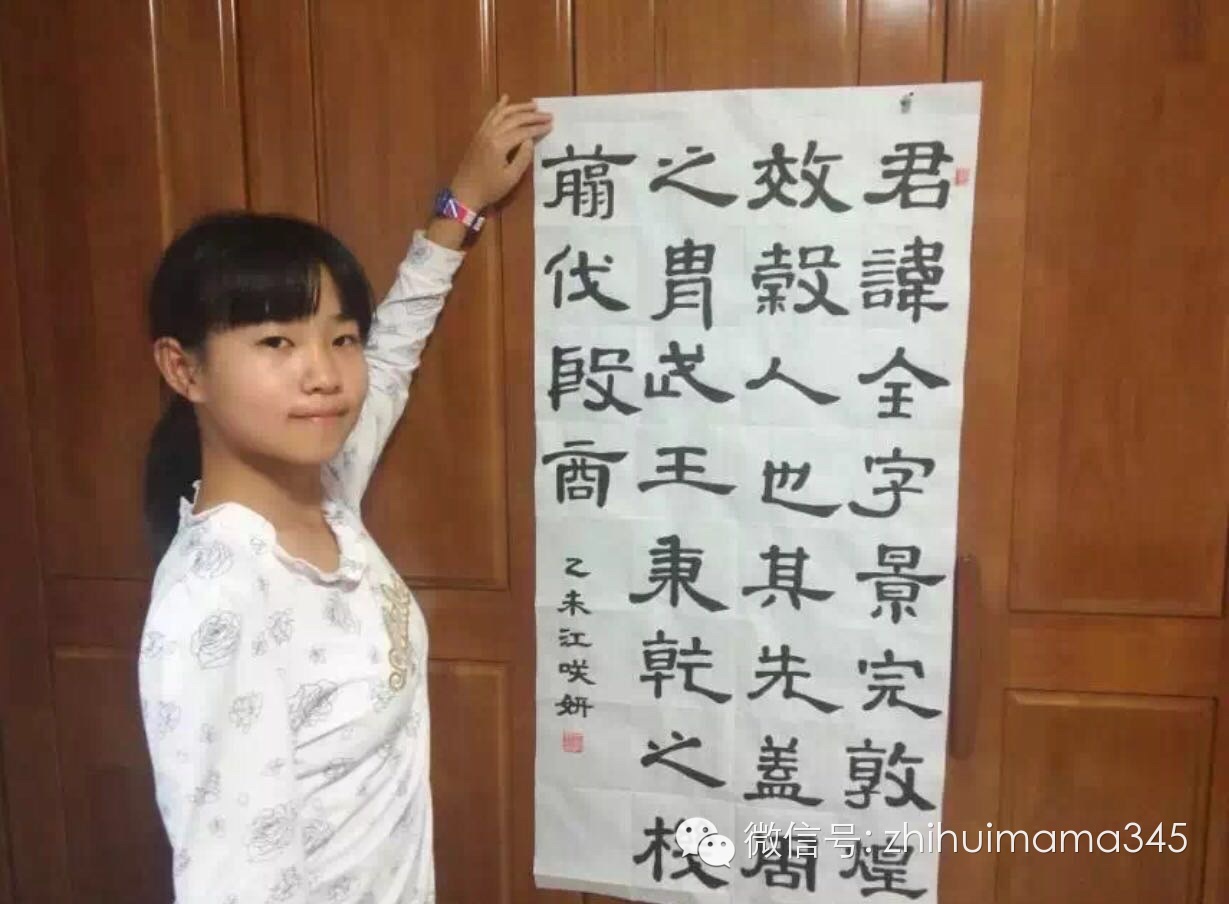 君諱全字景完敦煌
效穀人也其先盖周
之胄武王秉乾之機
翦伐殷商
乙未江咲妍
微信号: zhihuimama345